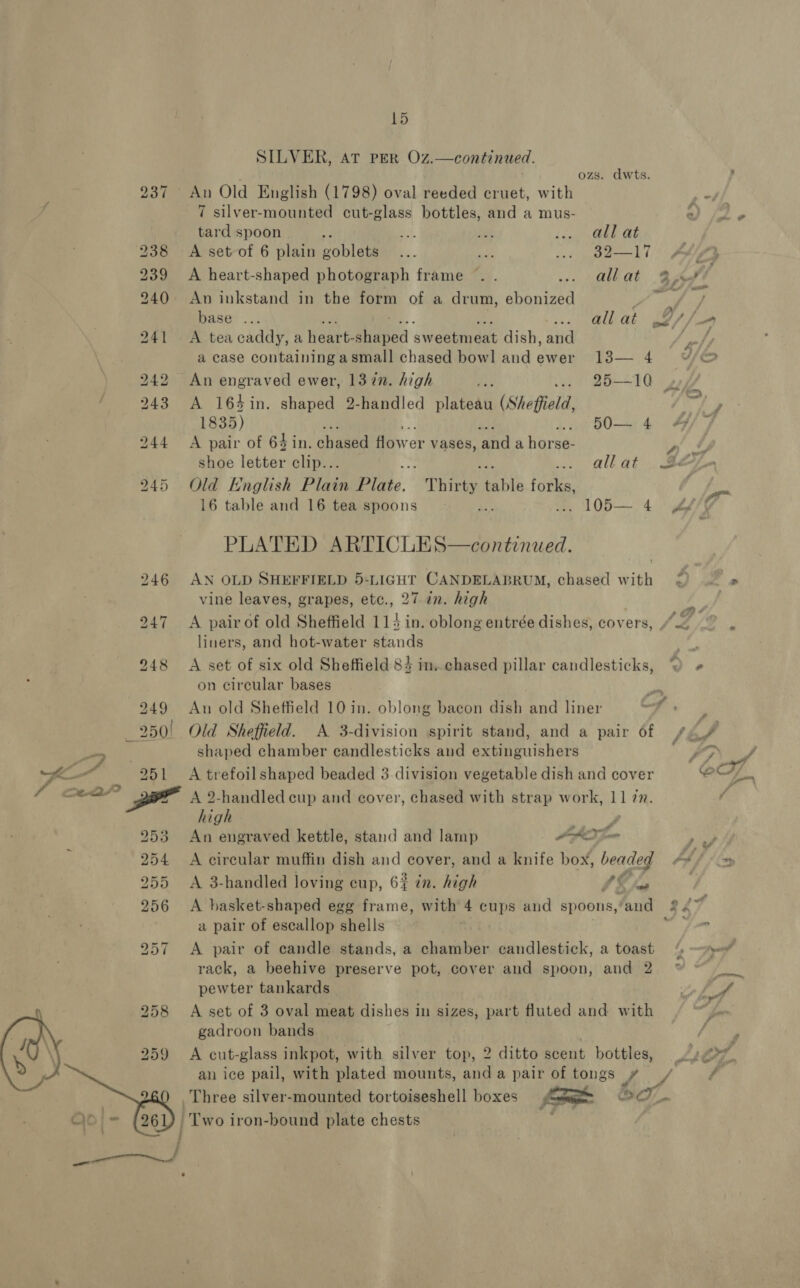 15
SILVER, AT PER OZ.—continued.
ozs. dwts.
237 An Old English (1798) oval reeded cruet, with
7 silver-mounted cut-glass bottles, and a mus-
tard spoon ... all at
238 A set of 6 plain goblets ... 32—17
239 A heart-shaped photograph frame ... all at
240 An inkstand in the form of a drum, ebonized
base ... all at
241 A tea caddy, a heart-shaped sweetmeat dish, and
a case containing a small chased bowl and ewer 13— 4
242 An engraved ewer, 13 in. high ... 25—10
243 A 16½ in. shaped 2-handled plateau (Sheffield,
1835) ... 50— 4
244 A pair of 6½ in. chased flower vases, and a horse-
shoe letter clip... all at
245 Old English Plain Plate. Thirty table forks,
16 table and 16 tea spoons ... 105— 4
PLATED ARTICLES—continued.
246 AN OLD SHEFFIELD 5-LIGHT CANDELABRUM, chased with
vine leaves, grapes, etc., 27 in. high
247 A pair of old Sheffield 11½ in. oblong entrée dishes, covers,
liners, and hot-water stands
248 A set of six old Sheffield 8½ in. chased pillar candlesticks,
on circular bases
249 An old Sheffield 10 in. oblong bacon dish and liner
250 Old Sheffield. A 3-division spirit stand, and a pair of
shaped chamber candlesticks and extinguishers
251 A trefoil shaped beaded 3 division vegetable dish and cover
A 2-handled cup and cover, chased with strap work, 11 in.
high
253 An engraved kettle, stand and lamp
254 A circular muffin dish and cover, and a knife box, beaded
255 A 3-handled loving cup, 6¾ in. high
256 A basket-shaped egg frame, with 4 cups and spoons, and
a pair of escallop shells
257 A pair of candle stands, a chamber candlestick, a toast
rack, a beehive preserve pot, cover and spoon, and 2
pewter tankards
258 A set of 3 oval meat dishes in sizes, part fluted and with
gadroon bands
259 A cut-glass inkpot, with silver top, 2 ditto scent bottles,
an ice pail, with plated mounts, and a pair of tongs
260 Three silver-mounted tortoiseshell boxes
261 Two iron-bound plate chests